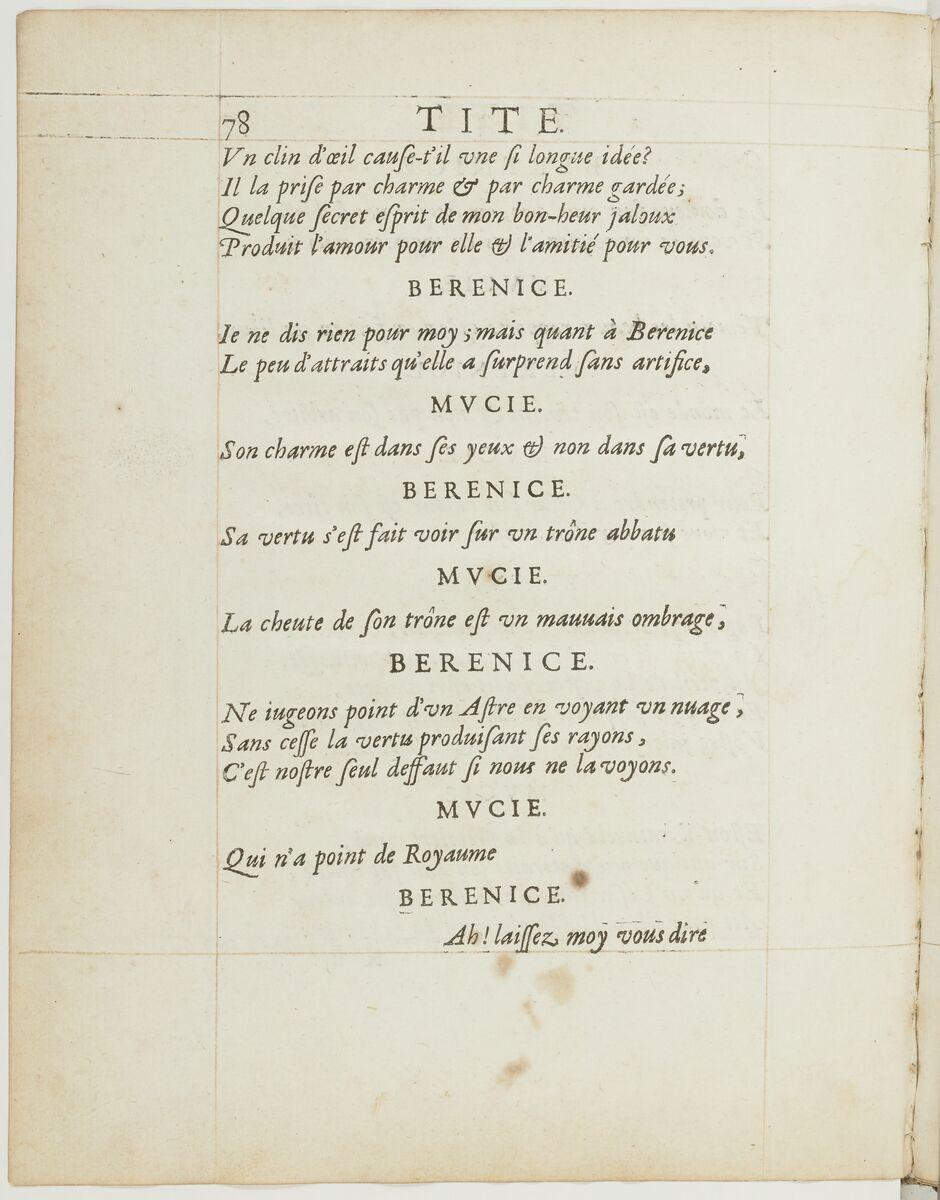 78 TITE.
Vn clin d'œil cauſe-t'il vne ſi longue idée?
Il la priſe par charme & par charme gardée;
Quelque ſecret eſprit de mon bon-heur jaloux
Produit l'amour pour elle & l'amitié pour vous.
BERENICE.
Ie ne dis rien pour moy; mais quant à Berenice
Le peu d'attraits qu'elle a ſurprend ſans artifice,
MVCIE.
Son charme eſt dans ſes yeux & non dans ſa vertu,
BERENICE.
Sa vertu s'eſt fait voir ſur vn trône abbatu
MVCIE.
La cheute de ſon trône eſt vn mauuais ombrage,
BERENICE.
Ne iugeons point d'vn Aſtre en voyant vn nuage,
Sans ceſſe la vertu produiſant ſes rayons,
C'eſt noſtre ſeul deffaut ſi nous ne la voyons.
MVCIE.
Qui n'a point de Royaume
BERENICE.
Ah! laiſſez moy vous dire